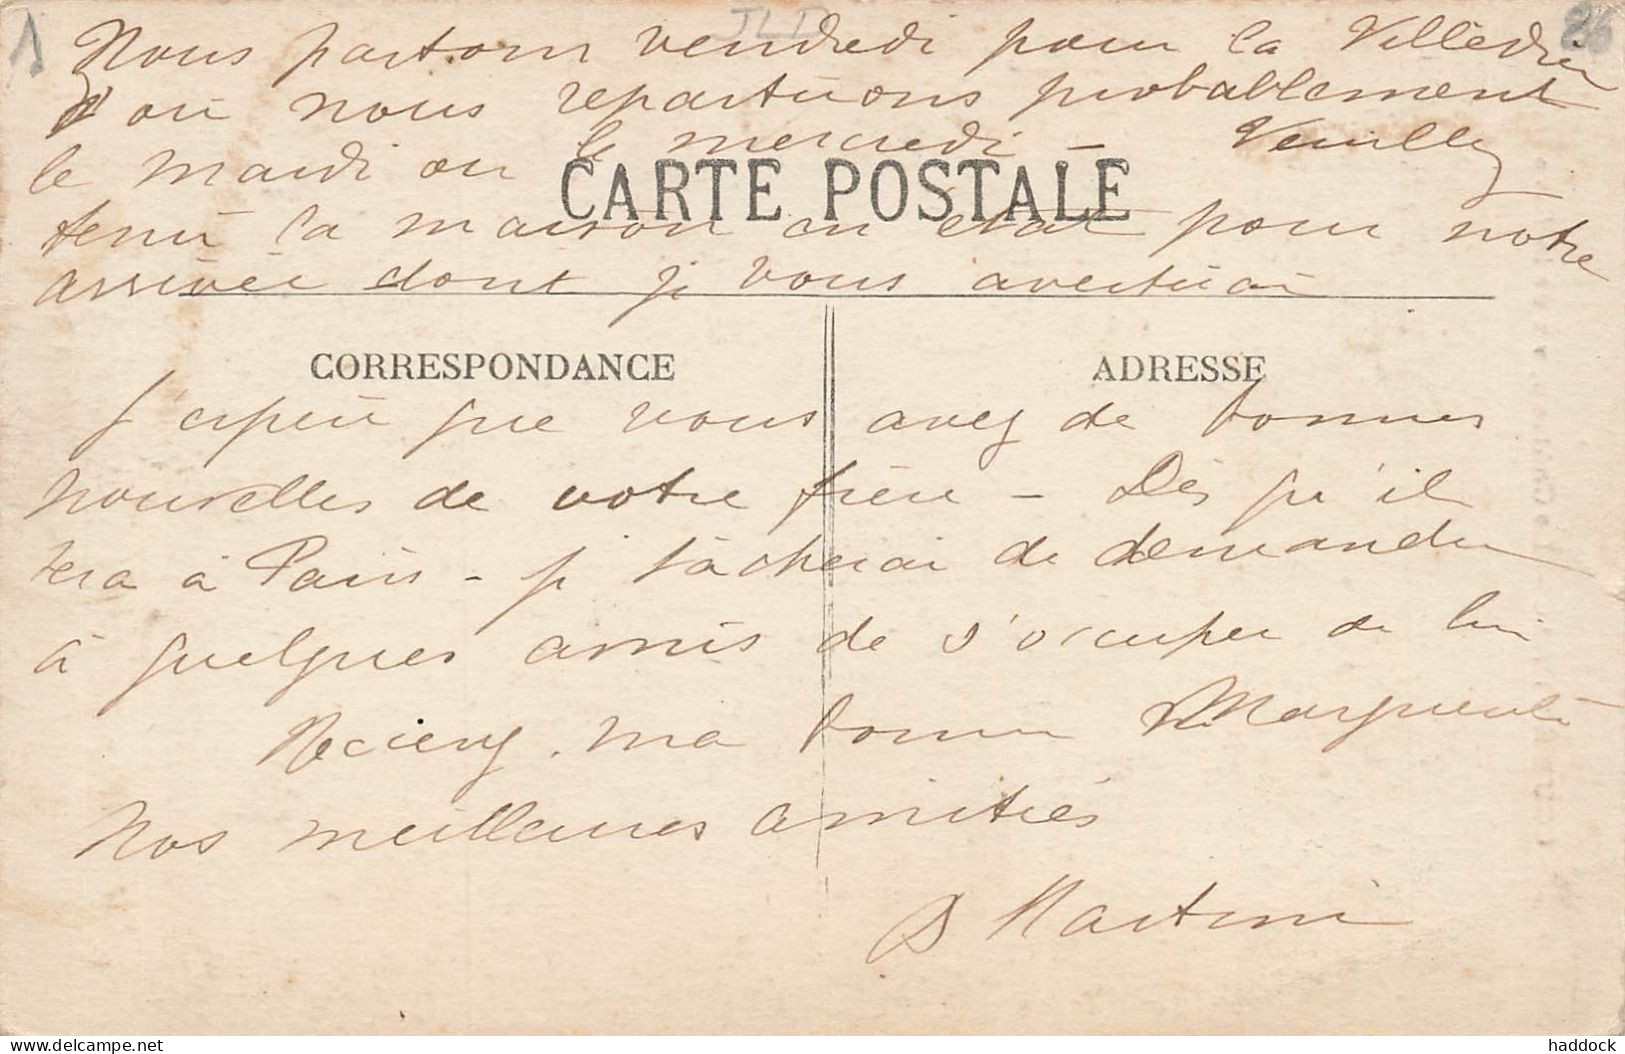 1 JLD 26
Nous partons vendredi pour la Villedieu
d'où nous repartirons probablement
le mardi ou le mercredi - Veuillez
CARTE POSTALE
tenir la maison en état pour notre
arrivée dont je vous avertirai
CORRESPONDANCE ADRESSE
J'espère que vous avez de bonnes
nouvelles de votre frère - Dès qu'il
sera à Paris - je tâcherai de demander
à quelques amis de s'occuper de lui
Recevez, ma bonne Marguerite
Nos meilleures amitiés
B Martini
haddock